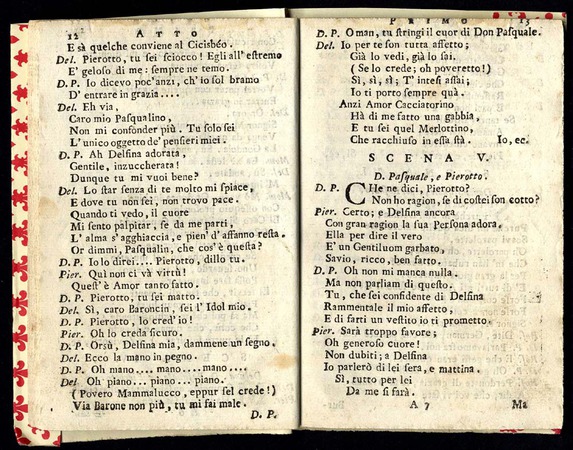 12 ATTO
E sà quelche conviene al Cicisbéo.
Del. Pierotto, tu sei sciocco! Egli all' estremo
E' geloso di me; sempre ne temo.
D. P. Io dicevo poc'anzi, ch'io sol bramo
D' entrare in grazia....
Del. Eh via,
Caro mio Pasqualino,
Non mi confonder più. Tu solo sei
L' unico oggetto de' pensieri miei.
D. P. Ah Delfina adorata,
Gentile, inzuccherata!
Dunque tu mi vuoi bene?
Del. Lo star senza di te molto mi spiace,
E dove tu non sei, non trovo pace.
Quando ti vedo, il cuore
Mi sento palpitar, se da me parti,
L' alma s' agghiaccia, e pien d' affanno resta.
Or dimmi, Pasqualin, che cos' è questa?
D. P. Io lo direi.... Pierotto, dillo tu.
Pier. Quì non ci và virtù!
Quest' è Amor tanto fatto.
D. P. Pierotto, tu sei matto.
Del. Sì, caro Baroncin, sei l' Idol mio.
D. P. Pierotto, lo cred' io!
Pier. Oh lo creda sicuro.
D. P. Orsù, Delfina mia, dammene un segno.
Del. Ecco la mano in pegno.
D. P. Oh mano.... mano.... mano....
Del Oh piano... piano... piano.
( Povero Mammalucco, eppur sel crede! )
Via Barone non più, tu mi fai male.
D. P.
PRIMO 13
D. P. O man, tu stringi il cuor di Don Pasquale.
Del. Io per te son tutta affetto;
Già lo vedi, già lo sai.
( Se lo crede; oh poveretto! )
Sì, sì, sì; T' intesi assai;
Io ti porto sempre quà.
Anzi Amor Cacciatorino
Hà di me fatto una gabbia,
E tu sei quel Merlottino,
Che racchiuso in essa stà. Io, ec.
SCENA V.
D. Pasquale, e Pierotto.
D. P. CHe ne dici, Pierotto?
Non ho ragion, se di costei son cotto?
Pier. Certo; e Delfina ancora
Con gran ragion la sua Persona adora.
Ella per dire il vero
E' un Gentiluom garbato,
Savio, ricco, ben fatto.
D. P. Oh non mi manca nulla.
Ma non parliam di questo.
Tu, che sei confidente di Delfina
Rammentale il mio affetto,
E di farti un vestito io ti prometto.
Pier. Sarà troppo favore;
Oh generoso cuore!
Non dubiti; a Delfina
Io parlerò di lei sera, e mattina.
Sì, tutto per lei
Da me si farà.
A 7 Ma